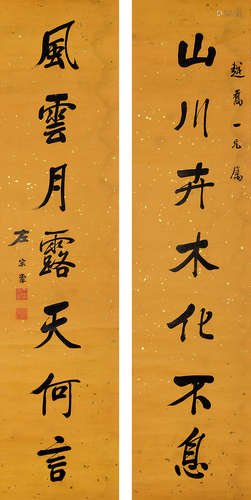 越喬一兄屬
山川卉木化不息
風雲月露天何言
左宗棠